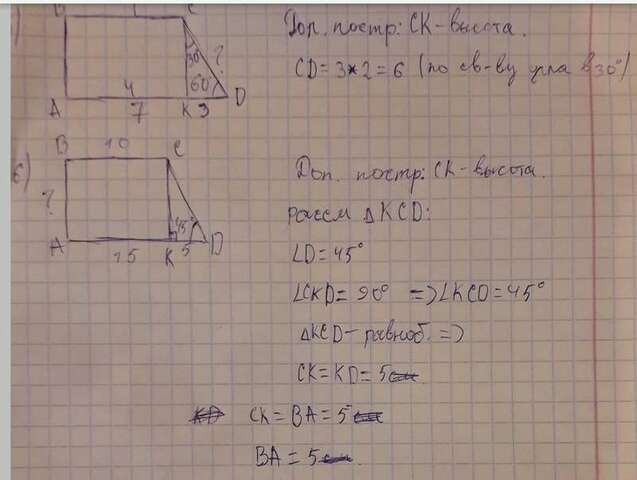 Доп. постр: СК-высота.
CD = 3*2 = 6 (по св-ву угла в 30°)
C
30
?
4
60
A
7
K 3 D
б)
B 10 C
?
45°
A
15
K 5 D
Доп. постр: СК-высота.
рассм ΔKCD:
∠D = 45°
∠CKD = 90° => ∠KCD = 45°
ΔKCD - равноб. =>
CK = KD = 5 см
KD CK = BA = 5 см
BA = 5 см.